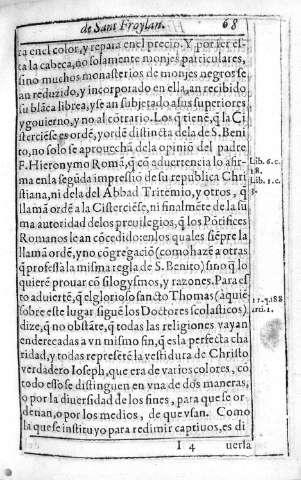 de Sant Froylan. 68
ra enel color, y repara enel precio. Y por ser es-
ta la cabeça, no solamente monjes particulares,
sino muchos monasterios de monjes negros se
an reduzido, y incorporado en ella, an recibido
su blãca librea, y se an subjetado a sus superiores
y gouierno, y no al cõtrario. Los q̃ tienẽ, q̃ la Ci
sterciẽse es ordẽ, y ordẽ distincta dela de S. Beni
to, no solo se aprouechã dela opiniõ del padre
F. Hieronymo Romã, q̃ cõ aduertencia lo afir-
ma enla segũda impressiõ de su republica Chri
stiana, ni dela del Abbad Tritemio, y otros, q̃
llamã ordẽ a la Cisterciẽse, ni finalmẽte de la su
ma autoridad delos preuilegios, q̃ los Põtifices
Romanos le an cõcedido: enlos quales siẽpre la
llamã ordẽ, y no cõgregaciõ (como hazẽ a otras
q̃ professã la misma regla de S. Benito) sino q̃ lo
quierẽ prouar cõ silogysmos, y razones. Para es
to aduiertẽ, q̃ el glorioso sancto Thomas (à quiẽ
sobre este lugar siguẽ los Doctores scolasticos)
dize, q̃ no obstãte, q̃ todas las religiones vayan
enderecadas a vn mismo fin, q̃ es la perfecta cha
ridad, y todas representẽ la vestidura de Christo
verdadero Ioseph, que era de varios colores, cõ
todo esso se distinguen en vna de dos maneras,
o por la diuersidad de los fines, para que se or-
denan, o por los medios, de que vsan. Como
la que se instituyo para redimir captiuos, es di
I 4 uersa
Lib. 6. c.
18.
Lib. 1. c.
3.
22. q. 188
arti. 1.